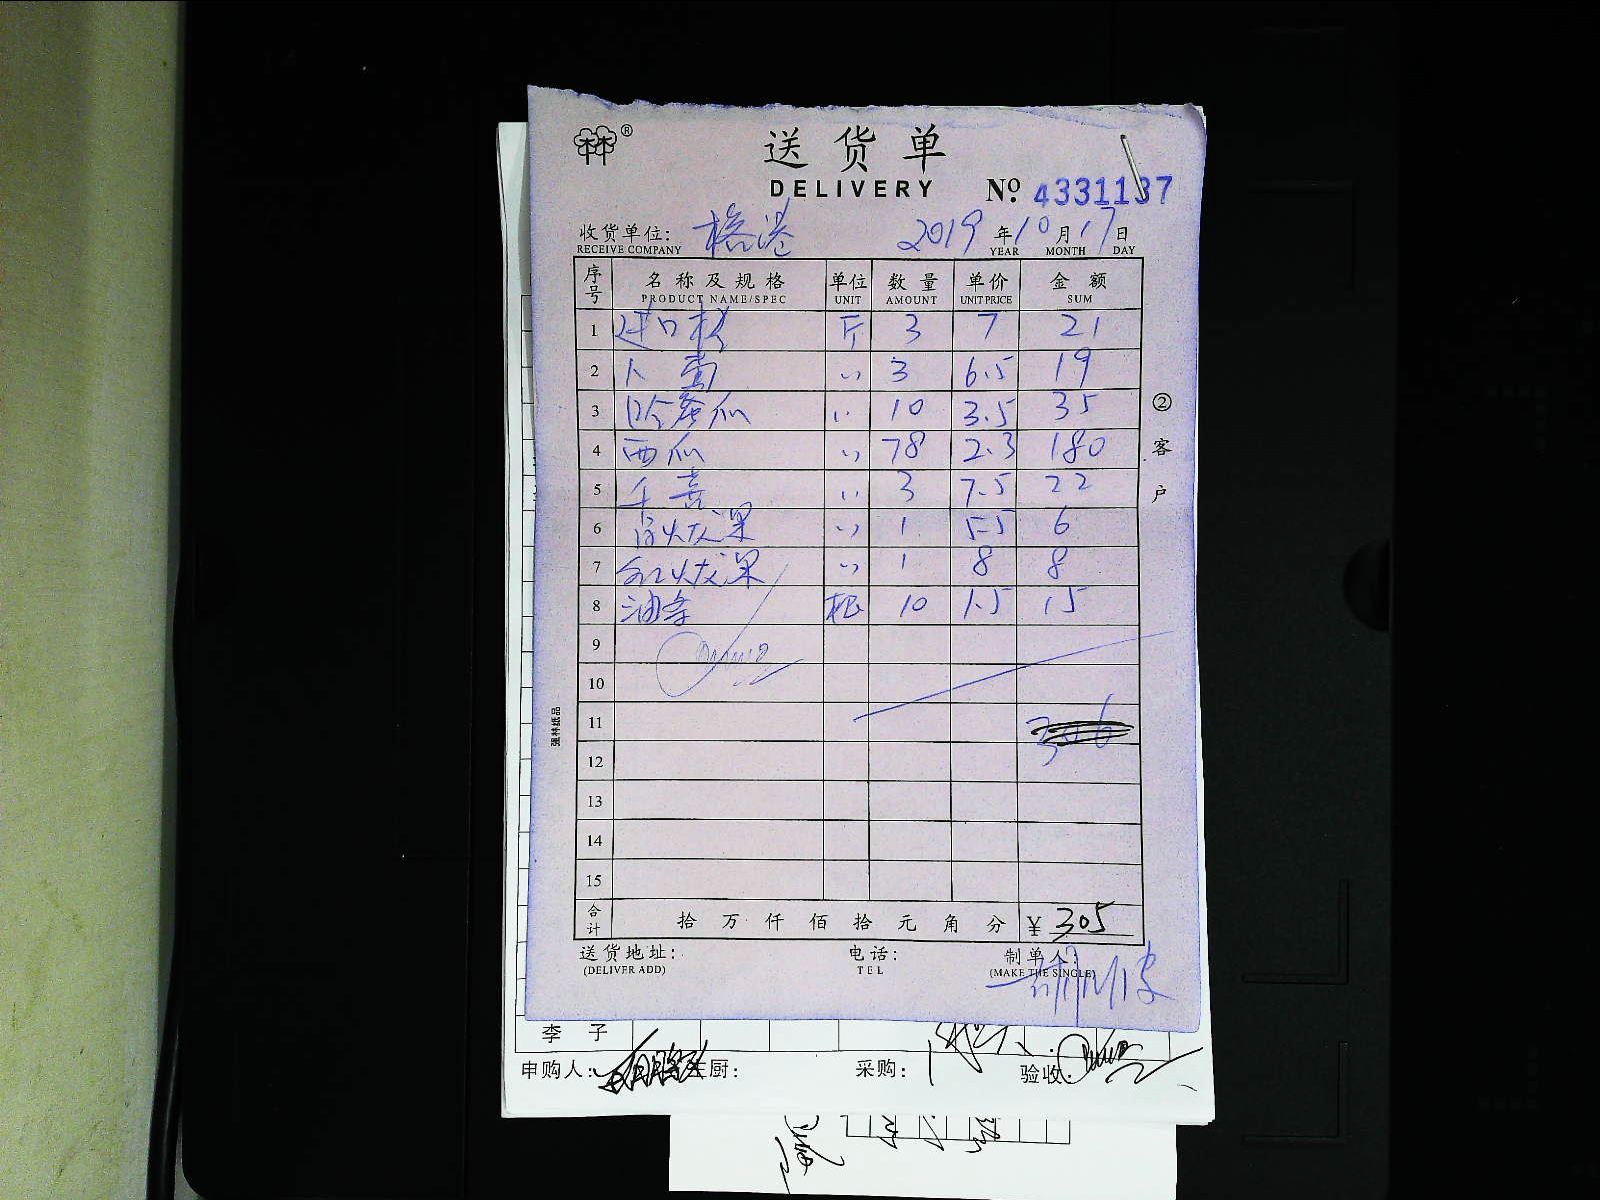 送货单
DELIVERY
№ 4331137
收货单位: 2019年10月17日
RECEIVE COMPANY YEAR MONTH DAY
序号 名称及规格 单位 数量 单价 金额
PRODUCT NAME/SPEC UNIT AMOUNT UNIT PRICE SUM
1 进口 斤 3 7 21
2 3 6.5 19
3 哈蜜瓜 10 3.5 35
4 西瓜 78 2.3 180
5 3 7.5 22
6 白火龙果 1 5.5 6
7 红火龙果 1 8 8
8 油条 根 10 1.5 15
9
10
11
12
13
14
15
合计 拾万仟佰拾元角分 ¥ 305
② 客户
强林纸品
送货地址: 电话: 制单人:
(DELIVER ADD) TEL (MAKE THE SINGLE)
李子
申购人: 主厨: 采购: 验收: